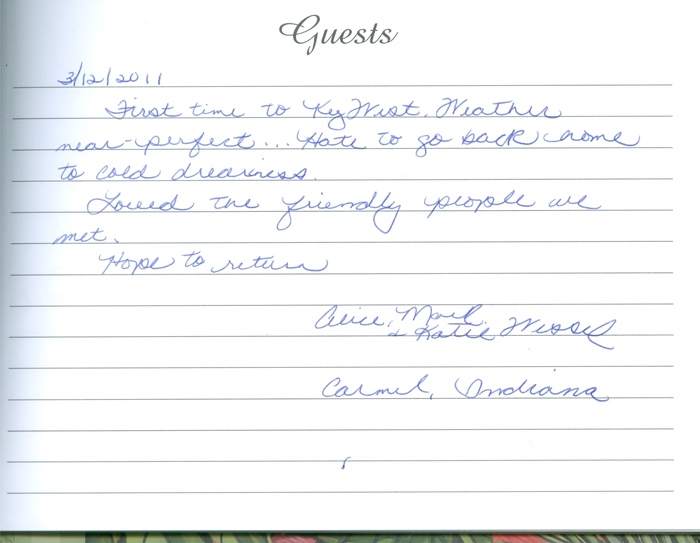 Guests
3/12/2011
First time to Key West. Weather
near-perfect... Hate to go back home
to cold dreariness.
Loved the friendly people we
met.
Hope to return
Alice, Mark
& Katie Wessel
Carmel, Indiana